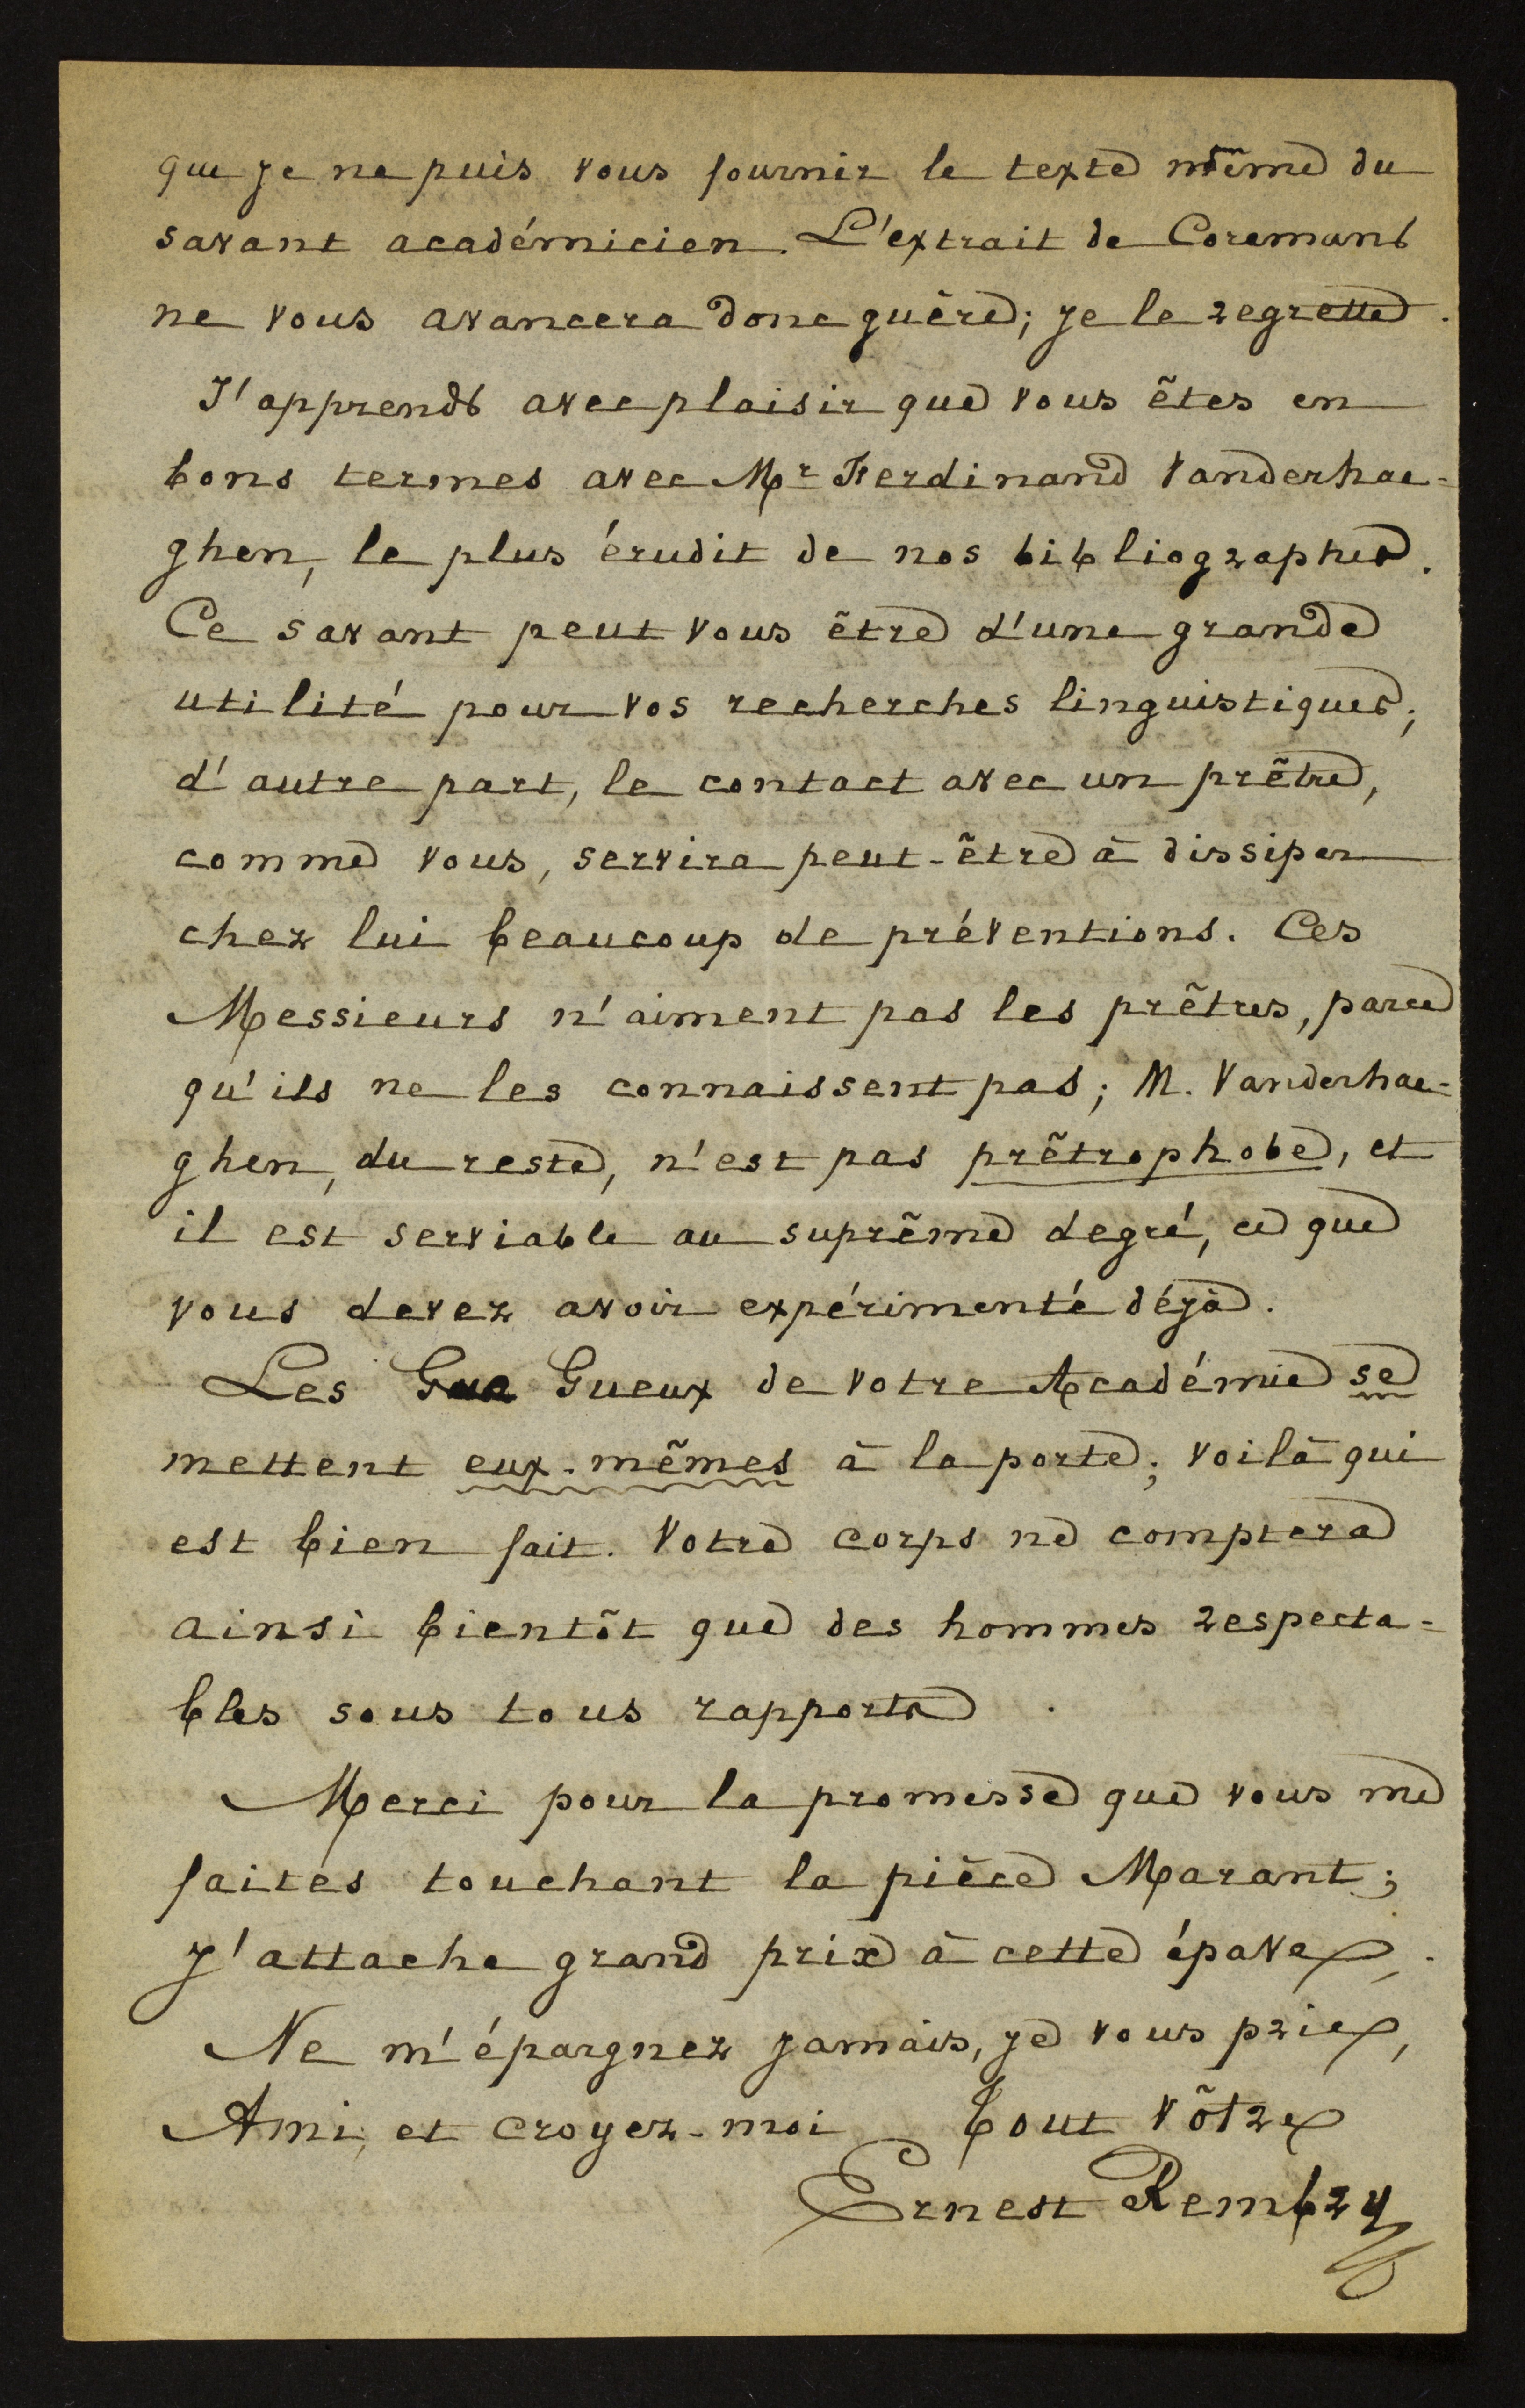 que je ne puis vous fournir le texte même du
savant académicien. L'extrait de Coremans
ne vous avancera donc guère; je le regrette.
J'apprends avec plaisir que vous êtes en
bons termes avec Mr Ferdinand Vanderhae-
ghen, le plus érudit de nos bibliographes.
Ce savant peut vous être d'une grande
utilité pour vos recherches linguistiques;
d'autre part, le contact avec un prêtre,
comme vous, servira peut-être à dissiper
chez lui beaucoup de préventions. Ces
Messieurs n'aiment pas les prêtres, parce
qu'ils ne les connaissent pas; M. Vanderhae-
ghen, du reste, n'est pas prêtrophobe, et
il est serviable au suprême degré, ce que
vous devez avoir expérimenté déjà.
Les Gueux de votre Académie se
mettent eux-mêmes à la porte; voilà qui
est bien fait. Votre corps ne comptera
ainsi bientôt que des hommes respecta=
bles sous tous rapports.
Merci pour la promesse que vous me
faites touchant la pièce Marant;
j'attache grand prix à cette épave.
Ne m'épargnez jamais, je vous prie,
Ami, et croyez-moi tout vôtre
Ernest Rembry